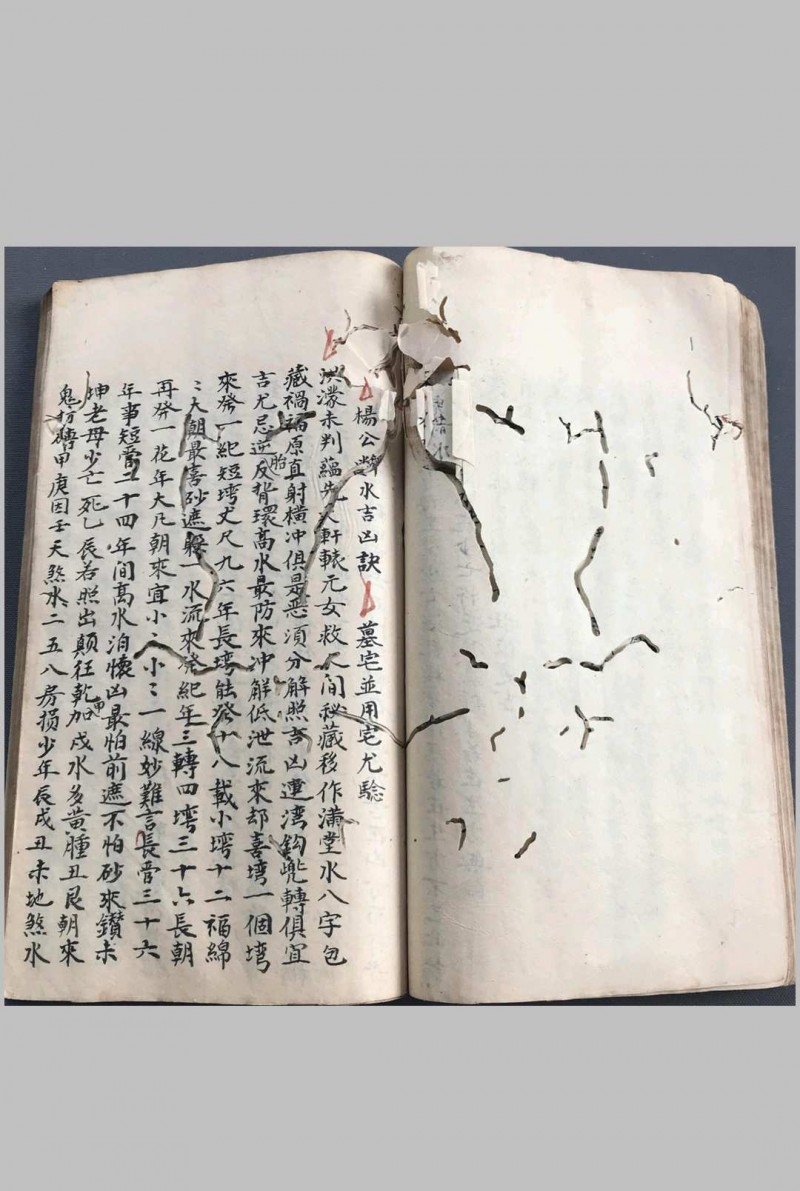 楊公水吉凶訣 墓宅並用宅尤驗
洪濛未判蘊先天軒轅元女救人間秘藏移作滿堂水八字包
藏禍福原直射橫冲俱是惡須分解照吉凶遶湾鈎兠轉俱宜
吉尤忌逆反背環高水最防來冲解低泄流來却喜塆一個塆
胎
來發一紀短塆丈尺九六年長塆能發十八載小塆十二福綿
〻大朝最喜砂遮躲一水流來發紀年三轉四塆三十六長朝
再發一花年大凡朝來宜小〻小〻一線妙難言長膏三十六
年事短膏二十四年間高水泊懷凶最怕前遮不怕砂來鑽未
坤老母少亡死乙辰若照出顛狂乾加戌水多黃腫丑艮朝來
甲
鬼甲庚因壬天煞水二五八房损少年辰戌丑未地煞水